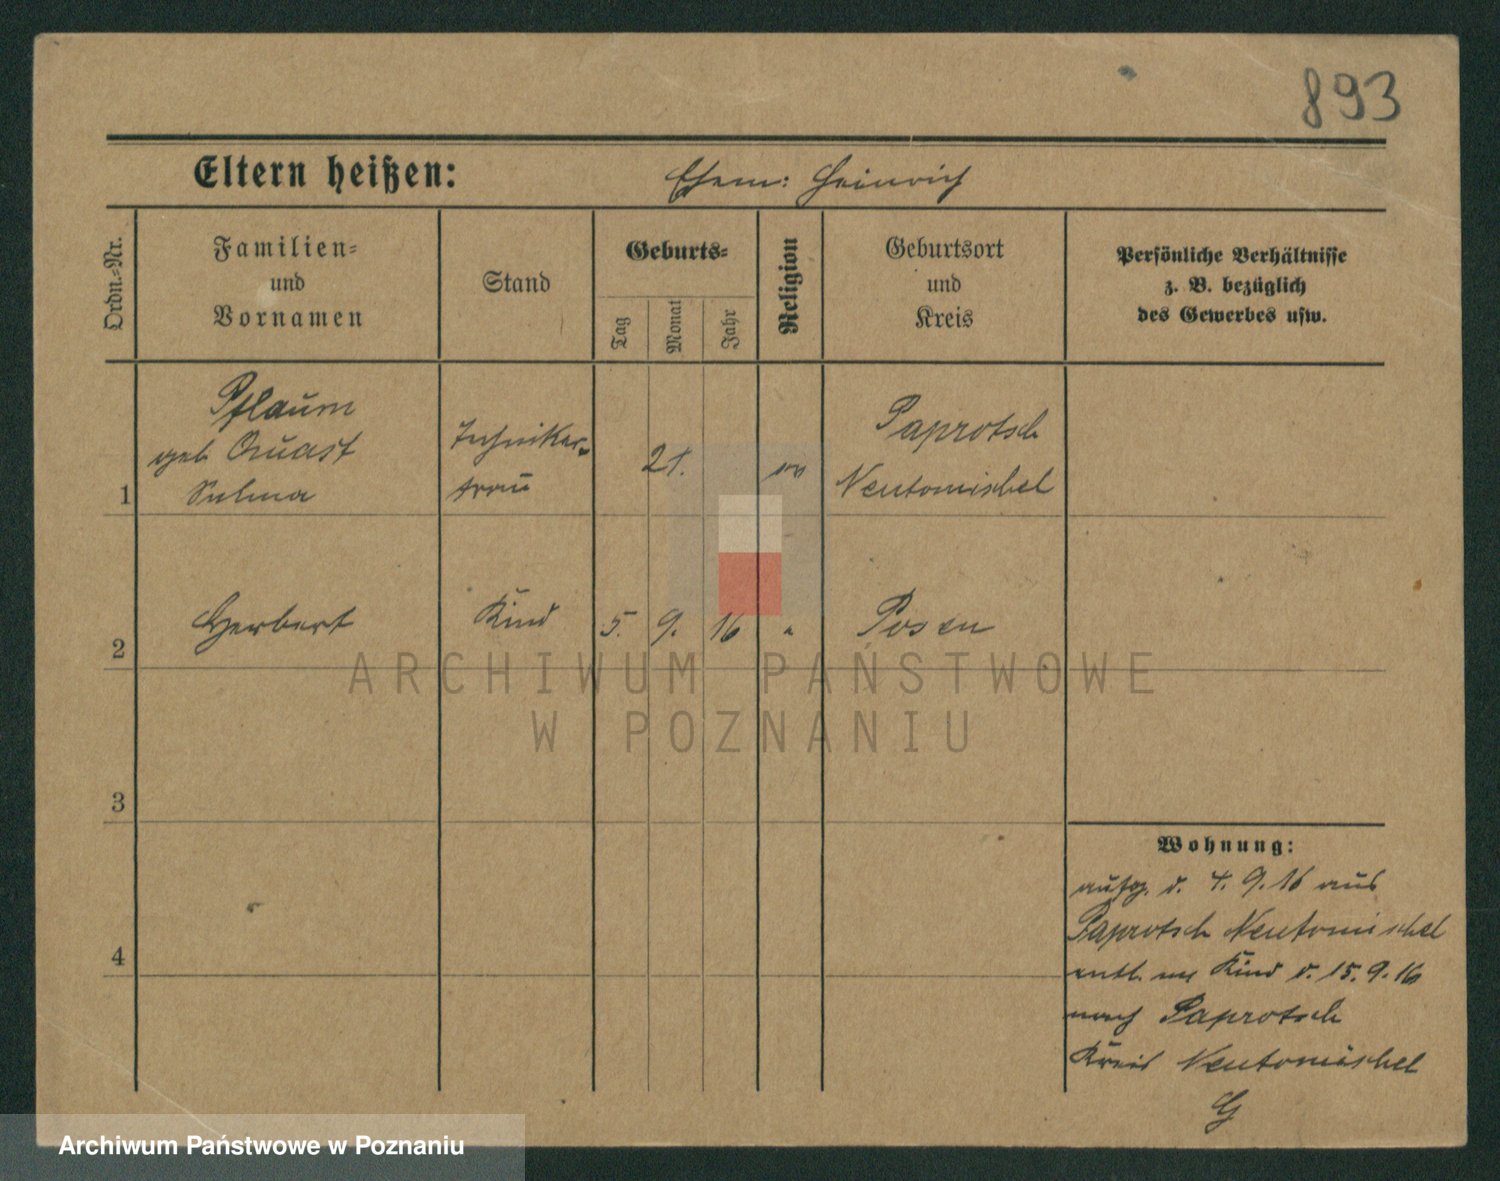 893
Eltern heißen: Ehem: Heinrich
Ordn.-Nr.
Familien-
und
Vornamen
Stand
Geburts-
Tag
Monat
Jahr
Religion
Geburtsort
und
Kreis
Persönliche Verhältnisse
z. B. bezüglich
des Gewerbes usw.
1
Pflaum
geb Quast
Selma
Techniker-
frau
21.
ev
Paprotsch
Neutomischel
2
Herbert
Kind
5. 9. 16
"
Posen
ARCHIWUM PAŃSTWOWE
W POZNANIU
3
4
Wohnung:
aufg. d. 4. 9. 16 aus
Paprotsch Neutomischel
entl. Kind d. 15. 9. 16
nach Paprotsch
Kreis Neutomischel
G
Archiwum Państwowe w Poznaniu